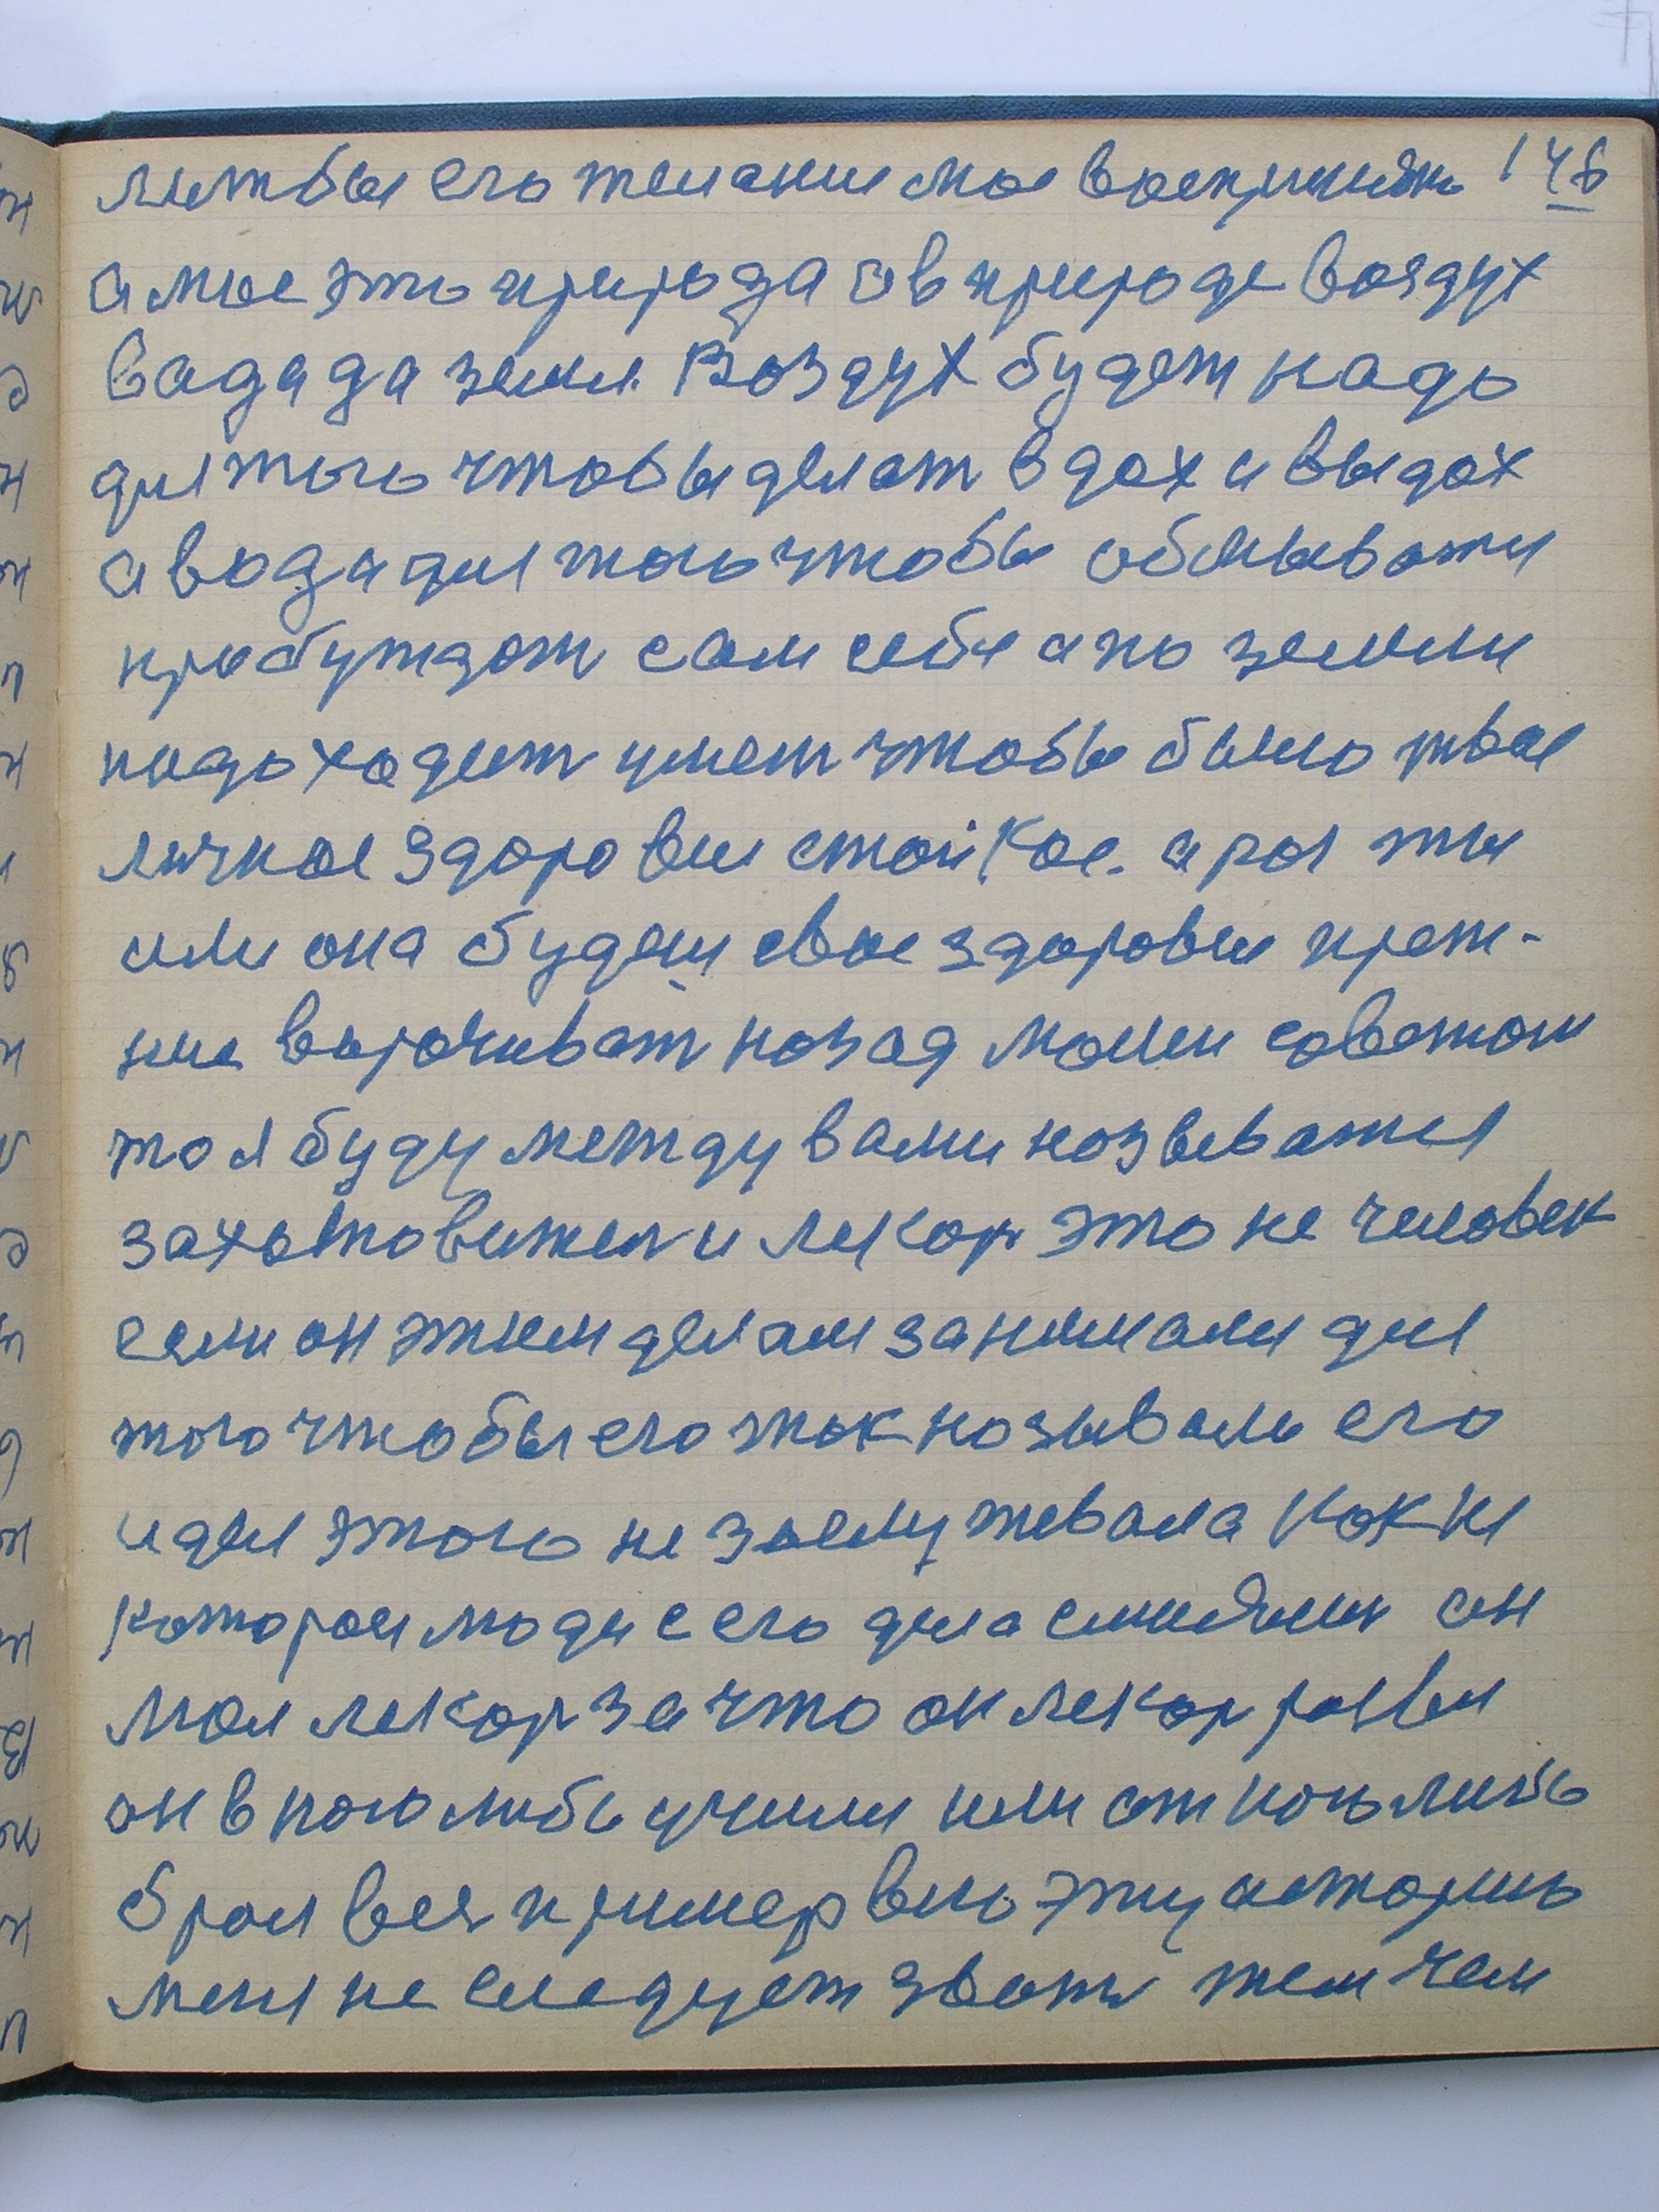 лижбы его желание мое воспринять 146
а мое это природа а в природе воздух
вада да земля. Воздух будет надо
для того чтобы делат вдох и выдох
а вода для того чтобы обмыватся
пробуждат сам себя а по земли
надо ходит умет чтобы было твое
личное здоровия стойкое. а раз ты
или она будеш свое здоровия преж-
нее ворочиват назад моим советом
то я буду между вами называтся
а лекар это не человек
если он этим делам занимался для
того чтобы его так называли его
и для этого не заслужевала как ни
которои люди с его дела он
мол лекар за что он лекар разви
он в кого любо училися или от кого либо
брал вся пример всю эту историю
меня не следует звать тем чем